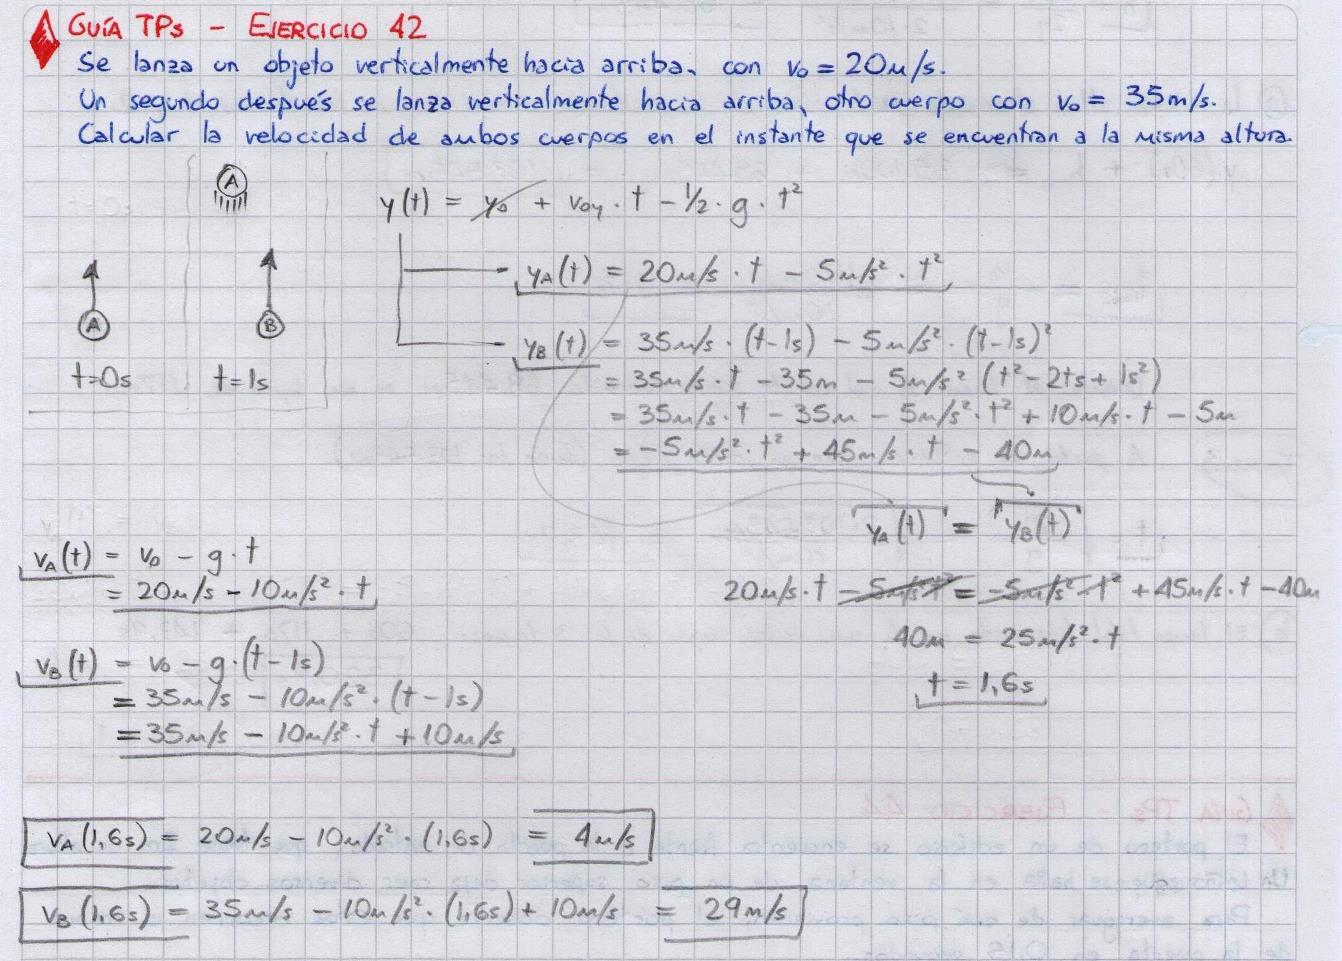 GUÍA TPs - EJERCICIO 42
Se lanza un objeto verticalmente hacia arriba, con v₀ = 20m/s.
Un segundo después se lanza verticalmente hacia arriba, otro cuerpo con v₀ = 35m/s.
Calcular la velocidad de ambos cuerpos en el instante que se encuentran a la misma altura.
A
A
B
t=0s
t=1s
y(t) = y₀ + v₀y · t - 1/2 · g · t²
yA(t) = 20m/s · t - 5m/s² · t²
yB(t) = 35m/s · (t-1s) - 5m/s² · (t-1s)²
= 35m/s · t - 35m - 5m/s² (t² - 2ts + 1s²)
= 35m/s · t - 35m - 5m/s² · t² + 10m/s · t - 5m
= -5m/s² · t² + 45m/s · t - 40m
yA(t) = yB(t)
20m/s · t - 5m/s² t² = -5m/s² · t² + 45m/s · t - 40m
40m = 25m/s² · t
t = 1,6s
vA(t) = v₀ - g · t
= 20m/s - 10m/s² · t
vB(t) = v₀ - g · (t - 1s)
= 35m/s - 10m/s² · (t - 1s)
= 35m/s - 10m/s² · t + 10m/s
vA(1,6s) = 20m/s - 10m/s² · (1,6s) = 4m/s
vB(1,6s) = 35m/s - 10m/s² · (1,6s) + 10m/s = 29m/s